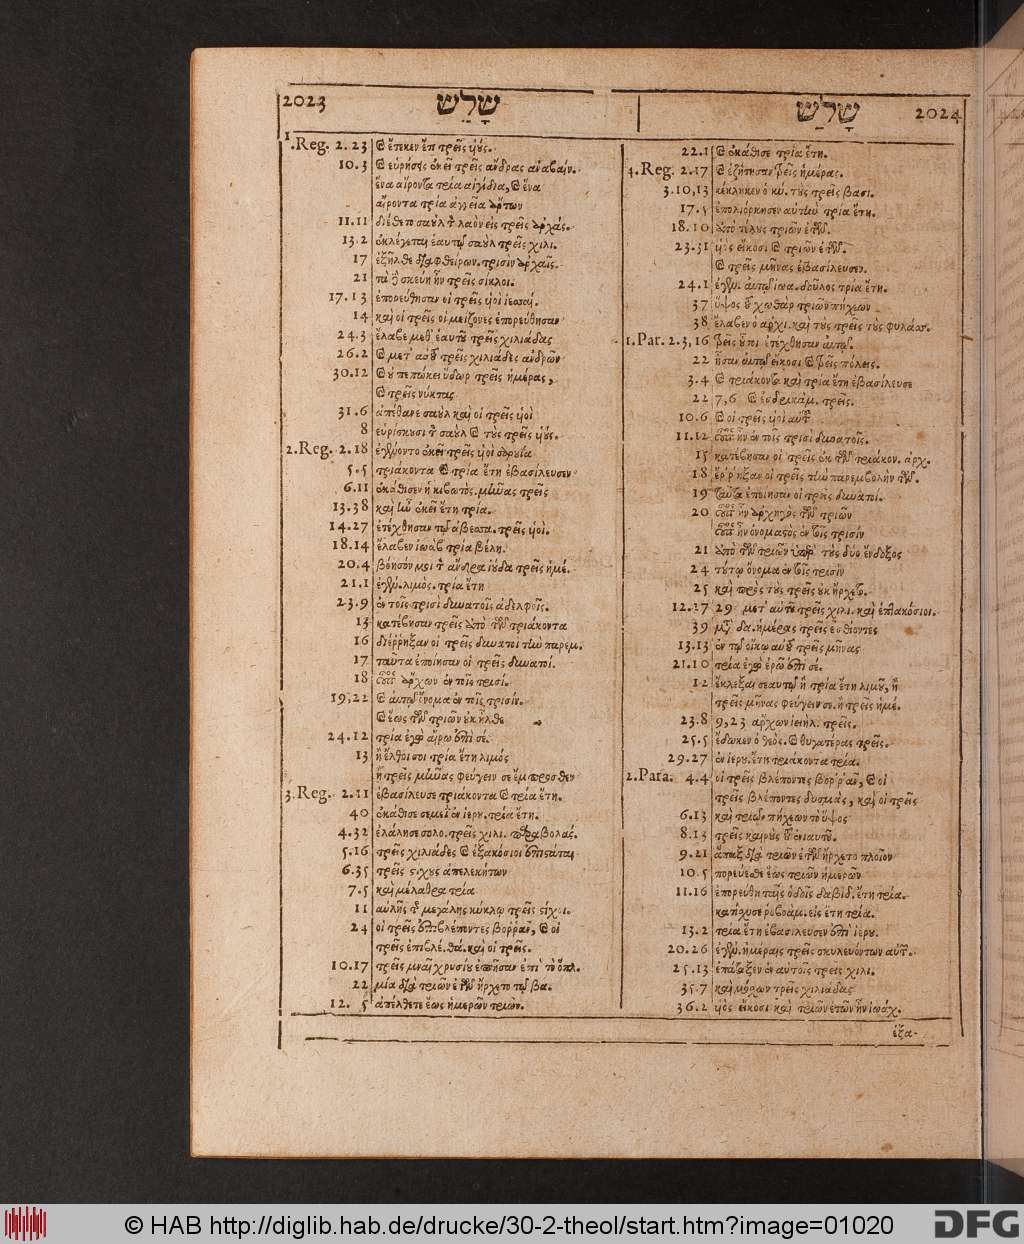 2023 שָׁלֹשׁ
שָׁלֹשׁ 2024
1.Reg. 2.23 ἔτεκεν ἔτι τρεῖς
10.3 εὑρήσεις ἐκεῖ τρεῖς ἄνδρας
ἕνα αἴροντα τρία αἰγίδια, ἕνα
αἴροντα τρία ἀγγεῖα ἄρτων
11.11 διέθετο σαοὺλ τὸν λαὸν εἰς τρεῖς ἀρχάς.
13.2 ἐκλέγεται ἑαυτῷ σαοὺλ τρεῖς χιλι.
17 ἐξῆλθε διαφθείρων. τρισὶν ἀρχαῖς.
21 σκεύη ἦν τρεῖς σίκλοι.
17.13 ἐπορεύθησαν οἱ τρεῖς υἱοὶ ἰεσσαί.
14 καὶ οἱ τρεῖς οἱ μείζονες ἐπορεύθησαν
24.3 ἔλαβε μεθ' ἑαυτοῦ τρεῖς χιλιάδας
26.2 μετ' αὐτοῦ τρεῖς χιλιάδες ἀνδρῶν
30.12 οὐ πεπώκει ὕδωρ τρεῖς ἡμέρας,
τρεῖς νύκτας
31.6 ἀπέθανε σαοὺλ καὶ οἱ τρεῖς υἱοὶ
8 εὑρίσκουσι τὸν σαοὺλ τοὺς τρεῖς υἱούς.
2.Reg. 2.18 ἐγένοντο ἐκεῖ τρεῖς υἱοὶ σαρουία
5.5 τριάκοντα τρία ἔτη ἐβασίλευσεν
6.11 ἐκάθισεν ἡ κιβωτὸς. μῆνας τρεῖς
13.38 καὶ ἦν ἐκεῖ ἔτη τρία.
14.27 ἐτέχθησαν τῷ ἀβεσσα. τρεῖς υἱοί.
18.14 ἔλαβεν ἰωὰβ τρία βέλη.
20.4 βόησόν μοι τὸν ἄνδρα ἰούδα τρεῖς ἡμέ.
21.1 ἐγέν. λιμὸς. τρία ἔτη
23.9 ἐν τοῖς τρισὶ δυνατοῖς ἀδελφοῖς.
13 κατέβησαν τρεῖς ἀπὸ τῶν τριάκοντα
16 διέῤῥηξαν οἱ τρεῖς δυνατοὶ τὴν παρεμ.
17 ταῦτα ἐποίησαν οἱ τρεῖς δυνατοί.
18 οὗτος ἄρχων ἐν τοῖς τρισί.
19,22 αὐτῷ ὄνομα ἐν τοῖς τρισίν.
ἕως τῶν τριῶν οὐκ ἦλθε
24.12 τρία ἐγὼ αἴρω ἐπὶ σέ.
13 ἢ ἔλθοι σοι τρία ἔτη λιμός
ἢ τρεῖς μῆνας φεύγειν σε ἔμπροσθεν
3.Reg. 2.11 ἐβασίλευσε τριάκοντα τρία ἔτη.
40 ἐκάθισε σεμεῒ ἐν ἱερ. τρία ἔτη.
4.32 ἐλάλησε σολο. τρεῖς χιλι. παραβολάς.
5.16 τρεῖς χιλιάδες ἑξακόσιοι ἐπιστάται
6.35 τρεῖς στίχους ἀπελεκήτων
7.5 καὶ μέλαθρα τρία
11 αὐλῆς τῆς μεγάλης κύκλῳ τρεῖς στίχοι.
24 οἱ τρεῖς ἐπιβλέποντες βοῤῥᾶν, οἱ
τρεῖς ἐπιβλέ. θά. καὶ οἱ τρεῖς.
10.17 τρεῖς μναῖ χρυσίου ἐνῆσαν ἐπὶ τὸ ὅπλ.
22 μία διὰ τριῶν ἐτῶν ἤρχετο τῷ βα.
12. 5 ἀπέλθετε ἕως ἡμερῶν τριῶν.
22.1 ἐκάθισε τρία ἔτη.
4.Reg. 2.17 ἐζήτησαν τρεῖς ἡμέρας.
3.10,13 κέκληκεν ὁ κύ. τοὺς τρεῖς βασι.
17.5 ἐπολιόρκησεν αὐτὴν τρία ἔτη.
18.10 ἀπὸ τέλους τριῶν ἐτῶν.
23.31 υἱὸς εἴκοσι τριῶν ἐτῶν.
τρεῖς μῆνας ἐβασίλευσεν.
24.1 ἐγέν. αὐτῷ ἰωα. δοῦλος τρία ἔτη.
37 ὕψος τοῦ χωθὰρ τριῶν πήχεων
38 ἔλαβεν ὁ ἀρχι. καὶ τοὺς τρεῖς τοὺς φυλάσ.
1.Par. 2.3,16 τρεῖς οὗτοι ἐτέχθησαν αὐτῷ.
22 ἦσαν αὐτῷ εἴκοσι τρεῖς πόλεις.
3.4 τριάκοντα καὶ τρία ἔτη ἐβασίλευσε
22 7,6 τρεῖς.
10.6 οἱ τρεῖς υἱοὶ αὐτοῦ
11.12 οὗτος ἦν ἐν τοῖς τρισὶ δυνατοῖς.
15 κατέβησαν οἱ τρεῖς ἐκ τῶν τριάκον. ἀρχ.
18 ἔῤῥηξαν οἱ τρεῖς τὴν παρεμβολὴν τῶν.
19 ταῦτα ἐποίησαν οἱ τρεῖς δυνατοί.
20 οὗτος ἦν ἀρχηγὸς τῶν τριῶν
οὗτος ἦν ὀνομαστὸς ἐν τοῖς τρισίν
21 ἀπὸ τῶν τριῶν ὑπὲρ τοὺς δύο ἔνδοξος
24 τούτῳ ὄνομα ἐν τοῖς τρισὶν
25 καὶ πρὸς τοὺς τρεῖς οὐκ ἤρχετο.
12.27 29 μετ' αὐτοῦ τρεῖς χιλι. καὶ ἑπτακόσιοι.
39 ἡμέρας τρεῖς ἐσθίοντες
13.13 ἐν τῷ οἴκῳ αὐτοῦ τρεῖς μῆνας
21.10 τρία ἐγὼ ἐρῶ ἐπὶ σέ.
12 ἔκλεξαι σεαυτῷ ἢ τρία ἔτη λιμοῦ, ἢ
τρεῖς μῆνας φεύγειν σε. ἢ τρεῖς ἡμέ.
23.8 9,23 ἄρχων ἰειὴλ. τρεῖς.
25.5 ἔδωκεν ὁ θεὸς. θυγατέρας τρεῖς.
29.27 ἐν ἱερου. ἔτη τριάκοντα τρία.
2.Para. 4.4 οἱ τρεῖς βλέποντες βοῤῥᾶν, οἱ
τρεῖς βλέποντες δυσμὰς, καὶ οἱ τρεῖς
6.13 καὶ τριῶν πήχεων τὸ ὕψος
8.13 τρεῖς καιροὺς τοῦ ἐνιαυτοῦ.
9.21 ἅπαξ διὰ τριῶν ἐτῶν ἤρχετο πλοῖον
10.5 πορεύεσθε ἕως τριῶν ἡμερῶν
11.16 ἐπορεύθη ταῖς ὁδοῖς δαβίδ. ἔτη τρία.
κατίσχυσε ῥοβοὰμ. εἰς ἔτη τρία.
13.2 τρία ἔτη ἐβασίλευσεν ἐπὶ ἱερου.
20.26 ἐγέν. ἡμέραις τρεῖς σκυλευόντων αὐτῶν.
25.13 ἐπάταξεν ἐν αὐτοῖς τρεῖς χιλι.
35.7 καὶ μόσχων τρεῖς χιλιάδας
36.2 υἱὸς εἴκοσι καὶ τριῶν ἐτῶν ἦν ἰωάχ.
ἑξα-
© HAB http://diglib.hab.de/drucke/30-2-theol/start.htm?image=01020
DFG